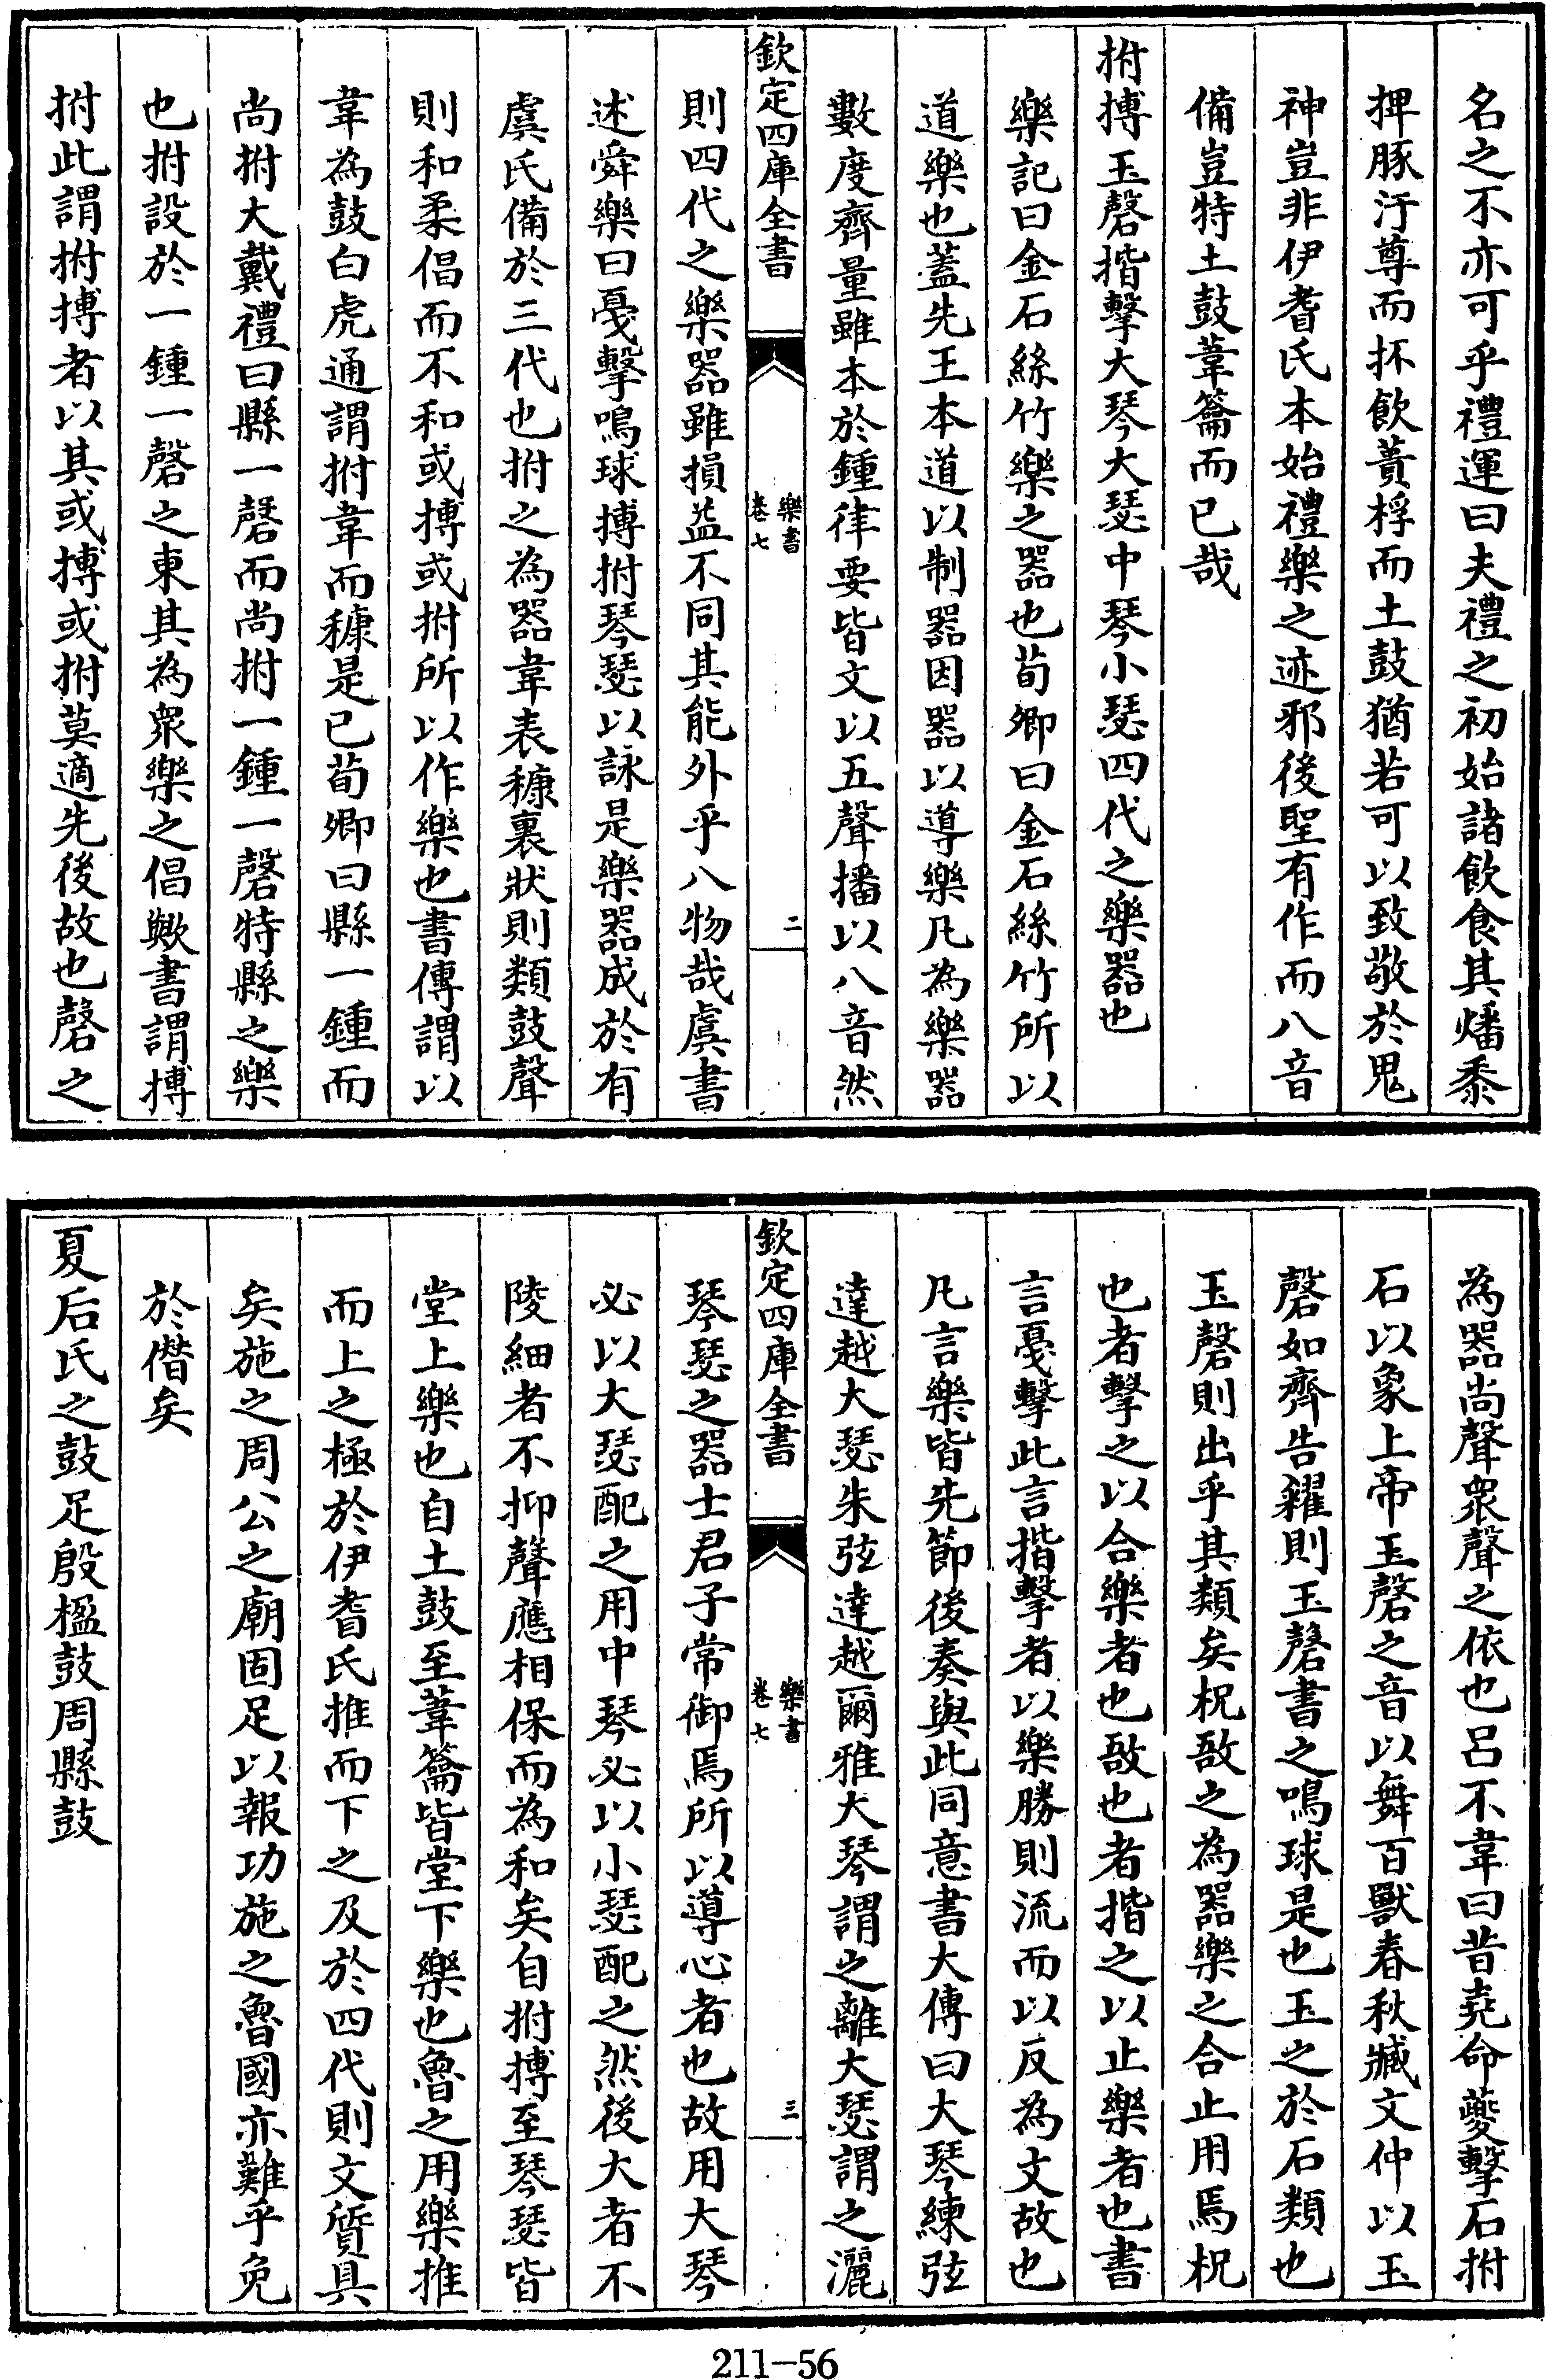 名之不亦可乎禮運曰夫禮之初始諸飲食其燔黍
捭豚汙尊而抔飲蕢桴而土鼓猶若可以致敬於鬼
神豈非伊耆氏本始禮樂之迹邪後聖有作而八音
備豈特土鼓葦籥而已哉
拊搏玉磬揩擊大琴大瑟中琴小瑟四代之樂器也
樂記曰金石絲竹樂之器也荀卿曰金石絲竹所以
道樂也蓋先王本道以制器因器以導樂凡為樂器
數度齊量雖本於鍾律要皆文以五聲播以八音然
欽定四庫全書
樂書
卷七
二
則四代之樂器雖損益不同其能外乎八物哉虞書
述舜樂曰戞擊鳴球搏拊琴瑟以詠是樂器成於有
虞氏備於三代也拊之為器韋表穅裏狀則類鼓聲
則和柔倡而不和或搏或拊所以作樂也書傳謂以
韋為鼓白虎通謂拊韋而穅是已荀卿曰縣一鍾而
尚拊大戴禮曰縣一磬而尚拊一鍾一磬特縣之樂
也拊設於一鍾一磬之東其為衆樂之倡歟書謂搏
拊此謂拊搏者以其或搏或拊莫適先後故也磬之
為器尚聲衆聲之依也呂不韋曰昔堯命夔擊石拊
石以象上帝玉磬之音以舞百獸春秋臧文仲以玉
磬如齊告糴則玉磬書之鳴球是也玉之於石類也
玉磬則出乎其類矣柷敔之為器樂之合止用焉柷
也者擊之以合樂者也敔也者揩之以止樂者也書
言戞擊此言揩擊者以樂勝則流而以反為文故也
凡言樂皆先節後奏與此同意書大傳曰大琴練弦
達越大瑟朱弦達越爾雅大琴謂之離大瑟謂之灑
欽定四庫全書
樂書
卷七
三
琴瑟之器士君子常御焉所以導心者也故用大琴
必以大瑟配之用中琴必以小瑟配之然後大者不
陵細者不抑聲應相保而為和矣自拊搏至琴瑟皆
堂上樂也自土鼓至葦籥皆堂下樂也魯之用樂推
而上之極於伊耆氏推而下之及於四代則文質具
矣施之周公之廟固足以報功施之魯國亦難乎免
於僭矣
夏后氏之鼓足殷楹鼓周縣鼓
211-56